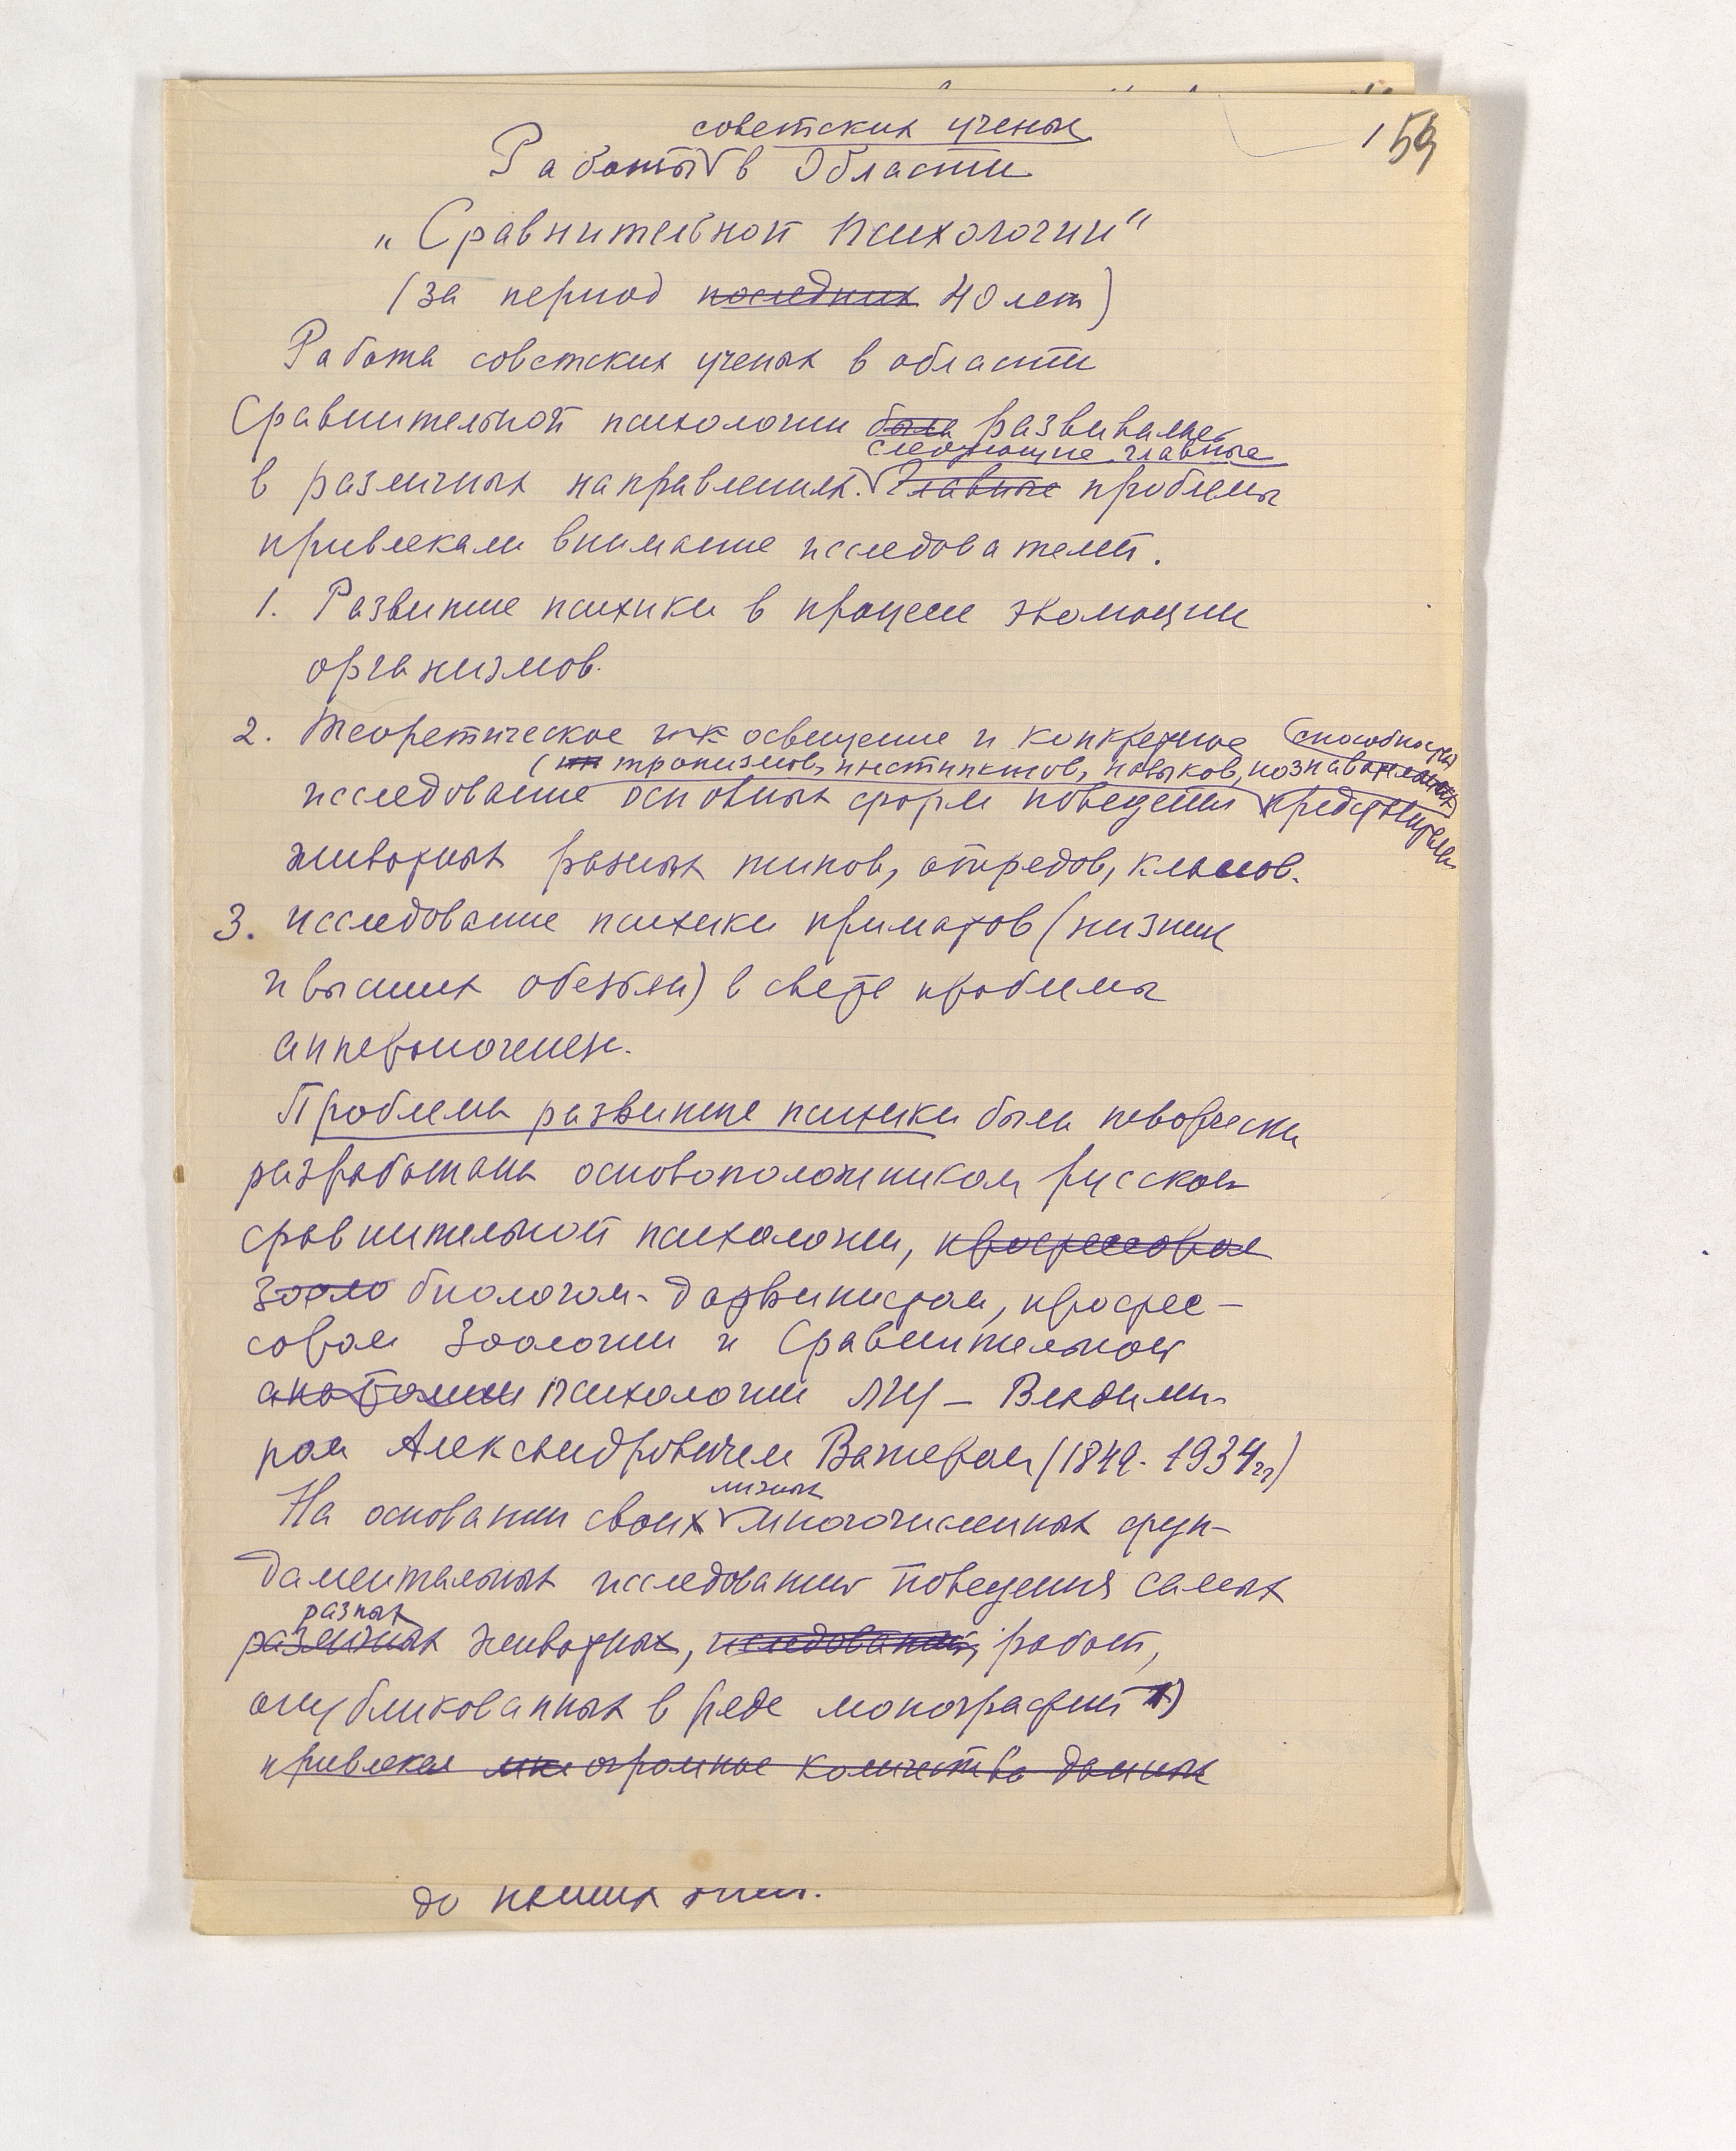 159
советских ученых
Работы в области
„Сравнительной психологии“
(за период последних 40 лет)
Работа советских ученых в области
Сравнительной психологии была развивалась
следующие главные
в различных направлениях. Главные проблемы
привлекали внимание исследователей.
1. Развитие психики в процессе эволюции
организмов.
2. Теоретическое освещение и конкретное способностей
(ин тропизмов, инстинктов, навыков, познавательных)
исследование основных форм поведения представителей
животных разных типов, отрядов, классов.
3. исследование психики приматов (низших
и высших обезьян) в свете проблемы
антропогенеза.
Проблема развития психики была творчески
разработана основоположником русской
сравнительной психологии, профессором
зооло биологом-дарвинистом, профес-
сором Зоологии и Сравнительной
анатомии психологии МГУ – Владими-
ром Александровичем Вагнером (1849-1934 гг)
личных
На основании своих многочисленных фун-
даментальных исследований поведения самых
разных
различных животных, исследований, работ,
опубликованных в ряде монографий 1)
привлекая огромное количество данных
до наших дней.